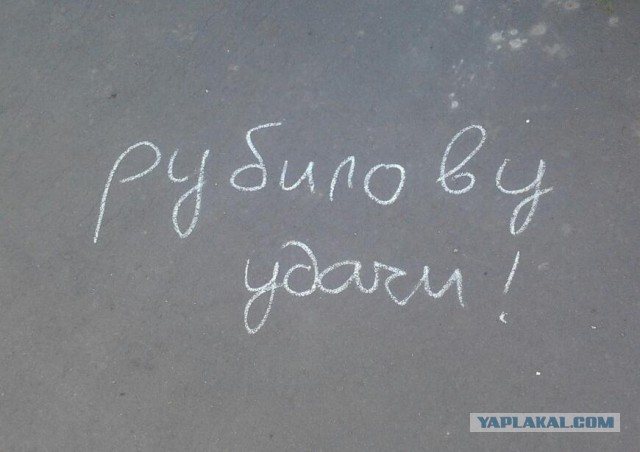 рубилову
удачи!
YAPLAKAL.COM